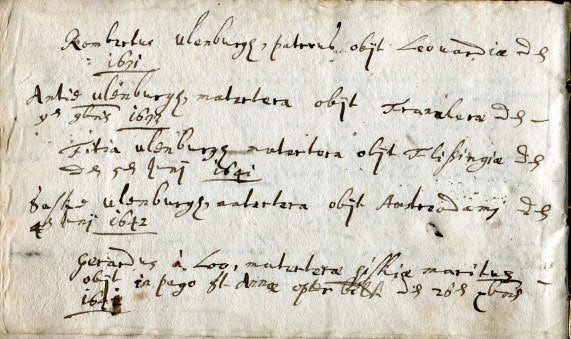 Rombertus Ulenburgh, patruus obijt Leouardiæ de
1631
Antie Ulenburgh, matertera obijt Franekeræ de
9bris 1633
Titia Ulenburgh matertera obijt Flissingiæ de
de 5e Junij 1641
Saske Ulenburgh, matertera obijt Amstrodamj de
Junij 1642
Gerardus à Loo, materteræ Hiskiæ maritus
obijt in pago St Annæ op bilt de 26e